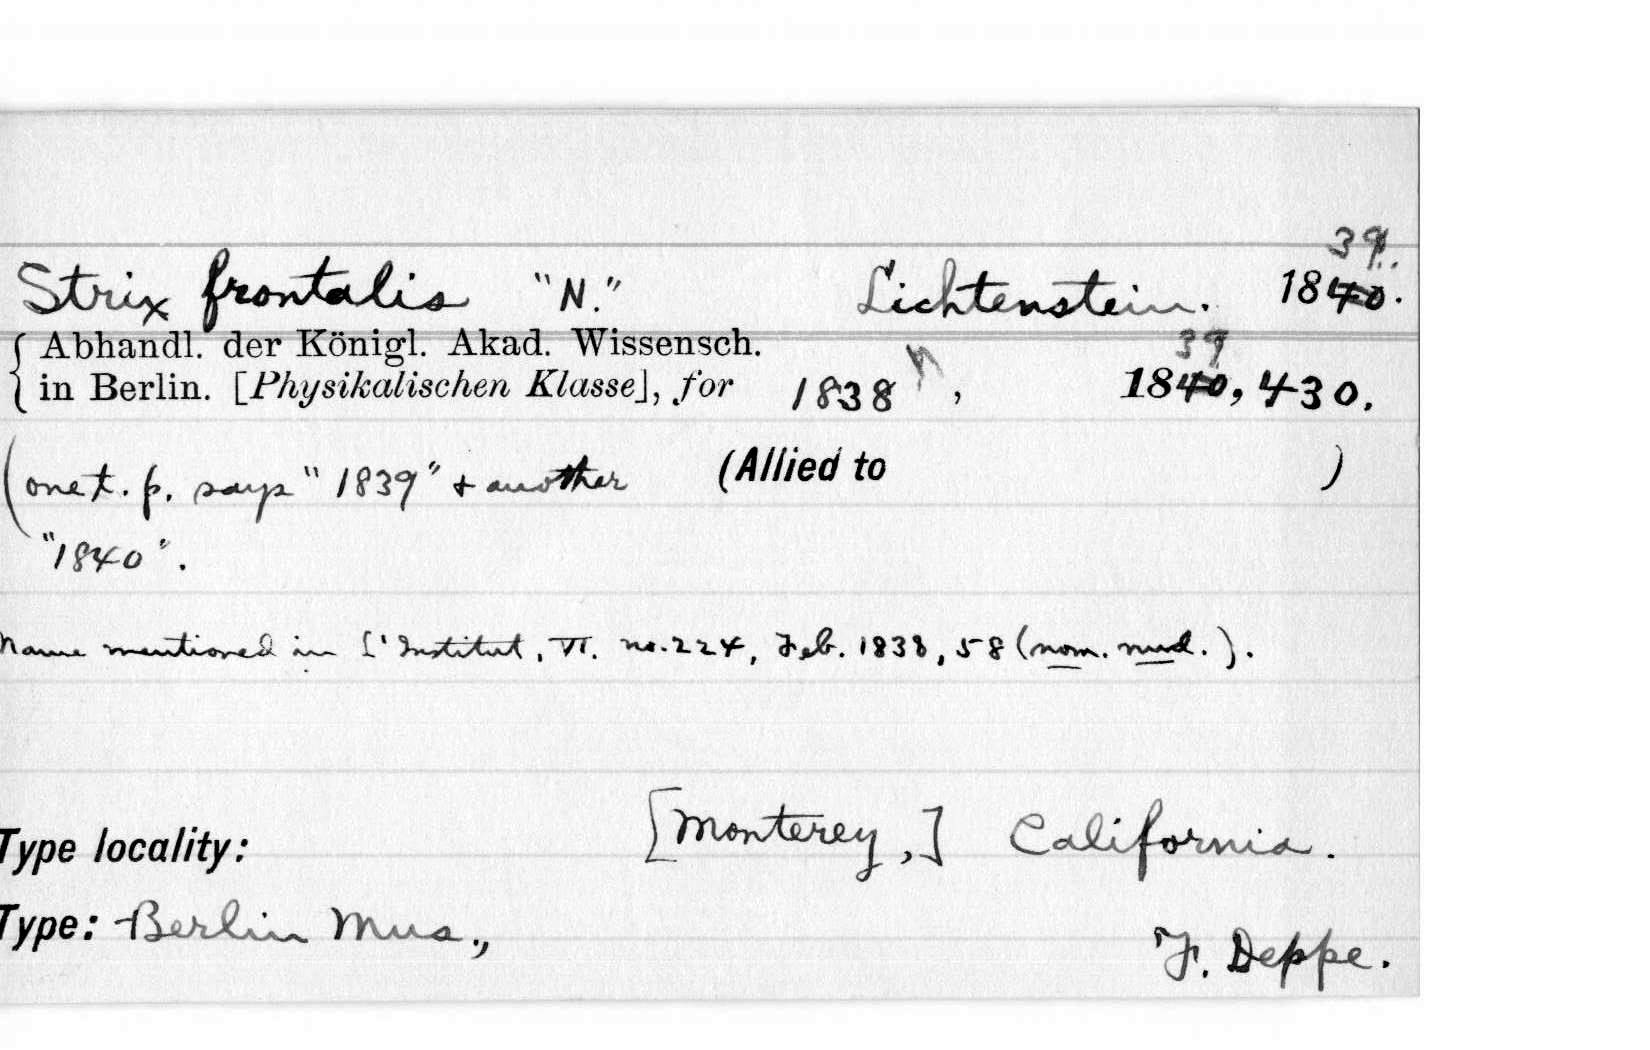 39.
Strix frontalis "N." Lichtenstein. 1840.
Abhandl. der Königl. Akad. Wissensch.
39
in Berlin. [Physikalischen Klasse], for 1838 , 1840, 430.
(one t. p. says "1839" & another (Allied to )
"1840".
Name mentioned in L'Institut, VI. no. 224, Feb. 1838, 58 (nom. nud.).
Type locality: [Monterey,] California.
Type: Berlin Mus., F. Deppe.